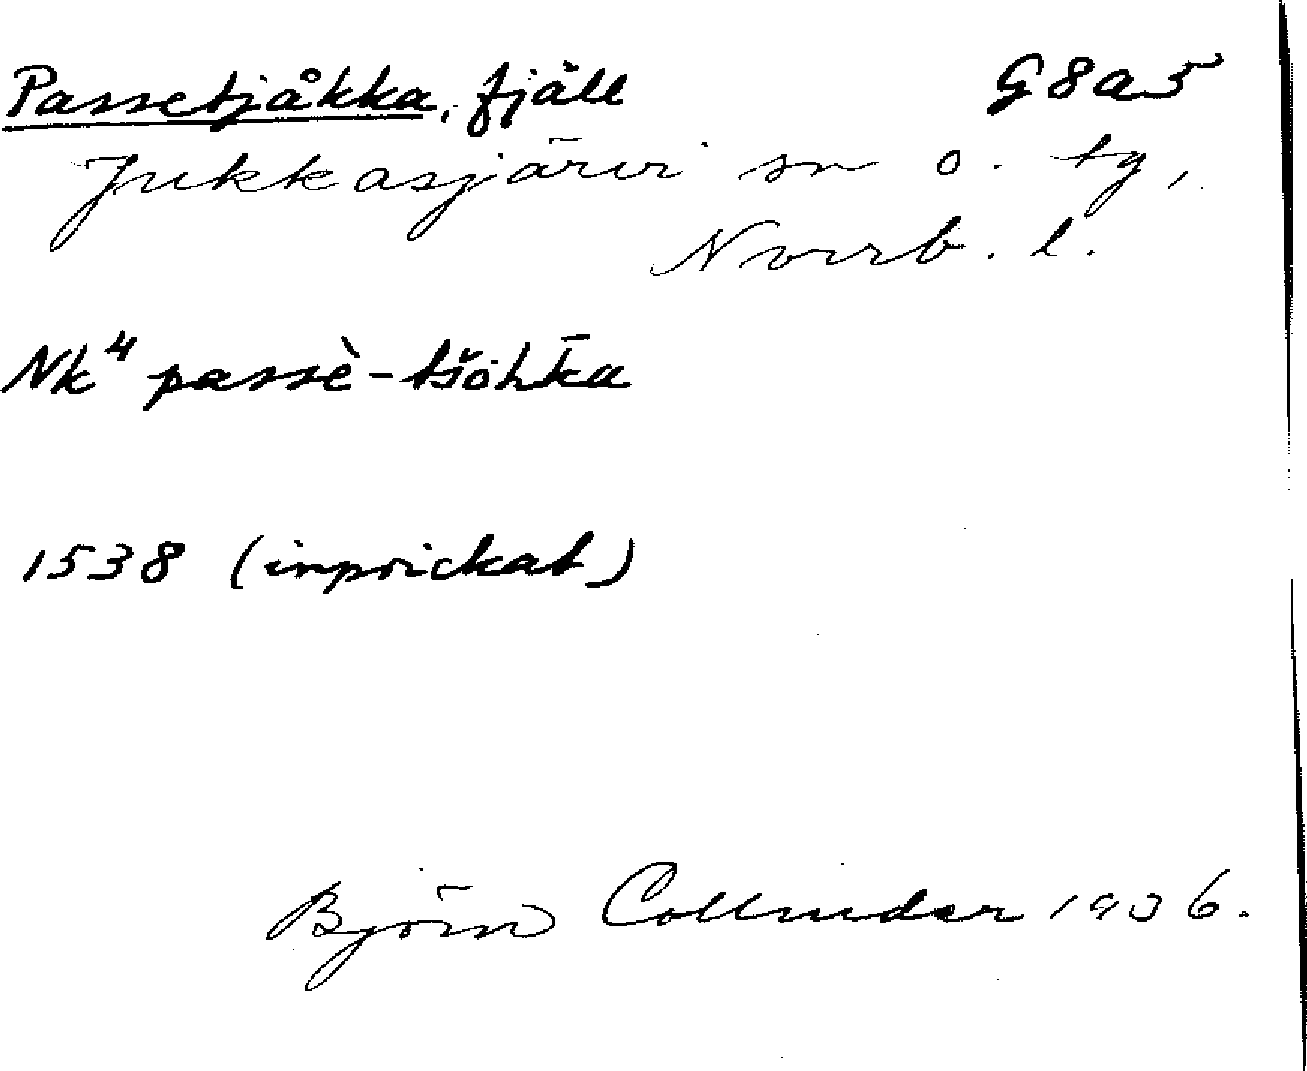 Passetjåkka, fjäll G8a5
Jukkasjärvi sn o. tg,
Norrb. l.
Nk⁴ passè-tšoh̄ka
1538 (inprickat)
Björn Collinder 1936.